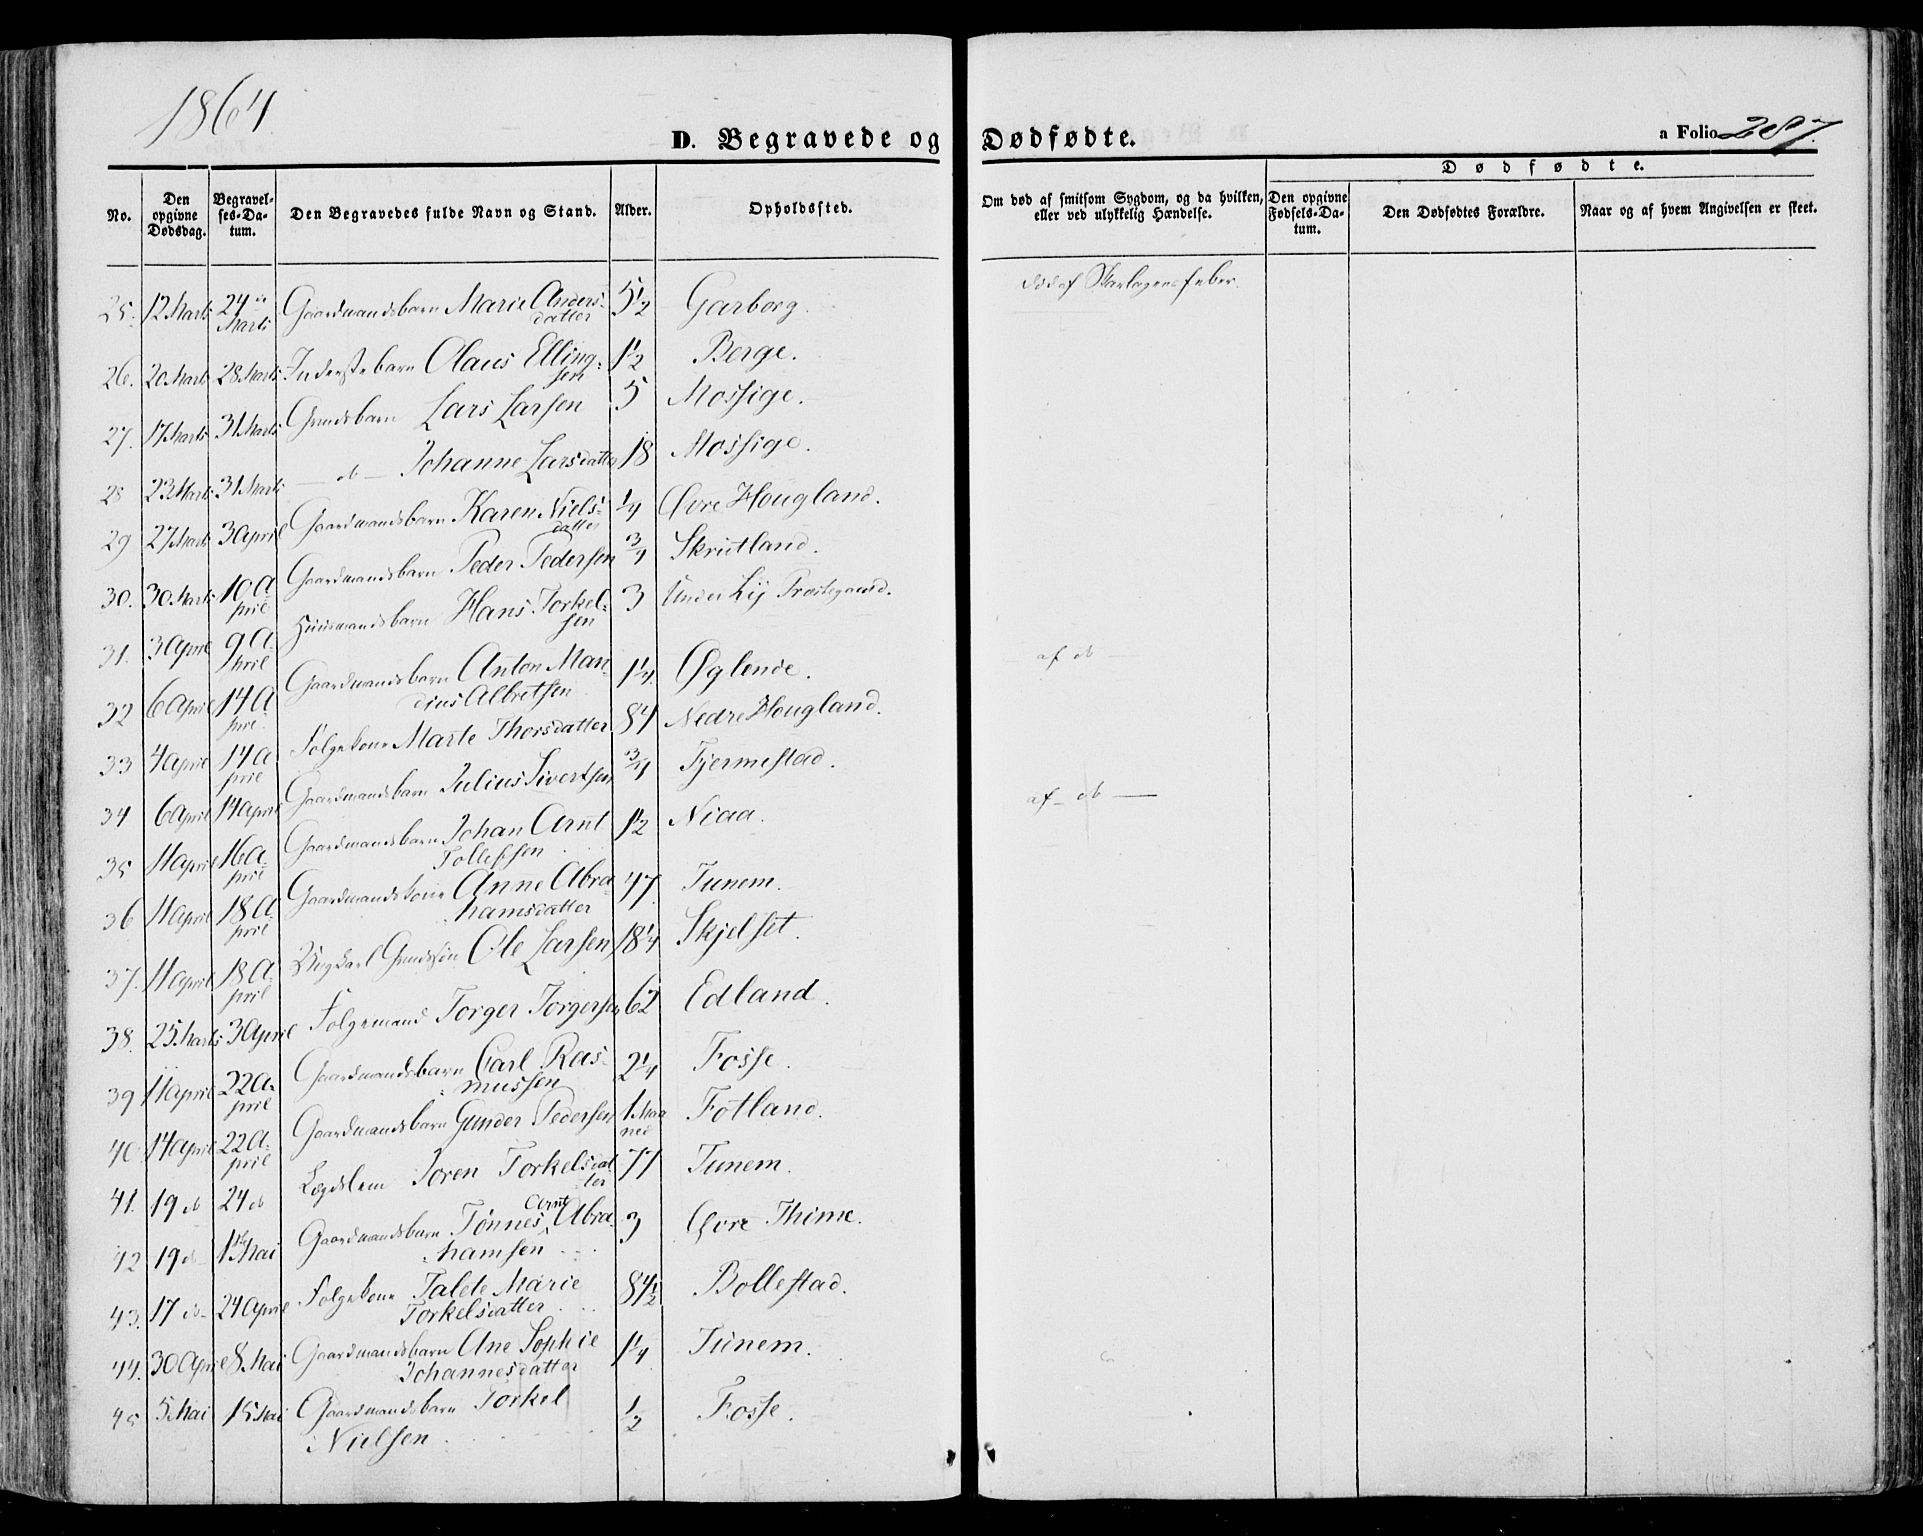 1864.
D. Begravede og Dødfødte.
a Folio 287.
No.
Den opgivne Dødsdag.
Begravelses-Datum.
Den Begravedes fulde Navn og Stand.
Alder.
Opholdssted.
Om død af smitsom Sygdom, og da hvilken, eller ved ulykkelig Hændelse.
Dødfødte.
Den opgivne Fødsels-Datum.
Den Dødfødtes Forældre.
Naar og af hvem Angivelsen er skeet.
25. 12 Marts 24de Marts Gaardmandsbarn Marie Andersdatter 5 1/2 Garborg. død af Skarlagensfeber.
26. 20 Marts 28 Marts Inderstebarn Olaus Ellingsen 1 1/2 Berge.
27. 17 Marts 31 Marts Gmdsbarn Lars Larsen 5 Mossige.
28 23 Marts 31 Marts — do — Johanne Larsdatter 18 Mossige.
29 27 Marts 3 April Gaardmandsbarn Karen Nielsdatter 1/4 Øvre Hougland.
30. 30 Marts 10 April Gaardmandsbarn Peder Pedersen 3/4 Skrutland.
31. 3 April 9 April Huusmandsbarn Hans Torkelsen 3 Under Lÿ Præstegaard.
32 6 April 14 April Gaardmandsbarn Anton Mandius Albretsen 1 1/4 Øglende. — af do —
33 4 April 14 April Følgekone Marte Thorsdatter 84 Nedre Hougland.
34 6 April 14 April Gaardmandsbarn Julius Sivertsen 3/4 Tjermestad.
35 11 April 16 April Gaardmandsbarn Johan Arnt Tollefsen 1 1/2 Niaa. af — do —
36 11 April 18 April Gaardmandskone Anne Abrahamsdatter 47 Tunem.
37. 11 April 18 April Ungkarl Gmdssøn Ole Larsen 18 1/4 Skjelset.
38. 25 Marts 3 April Følgemand Torger Torgersen 62 Edland.
39 11 April 22 April Gaardmandsbarn Carl Rasmussen 2 1/4 Fosse.
40 14 April 22 April Gaardmandsbarn Gunder Pedersen 1 Maaned Fotland.
41. 19 do 24 do Lægdslem Joren Torkelsdatter 77 Tunem.
42 19 do 1ste Mai Gaardmandsbarn Tønnes Arnt Abrahamsen 3 Øvre Thime.
43. 17 do 24 April Følgekone Talete Marie Torkelsdatter 84 1/2 Bollestad.
44. 30 April 8 Mai Gaardmandsbarn Ane Sophie Johannesdatter 1 1/4 Tunem.
45 5 Mai 15 Mai Gaardmandsbarn Torkel Nielsen 1/2 Fosse.